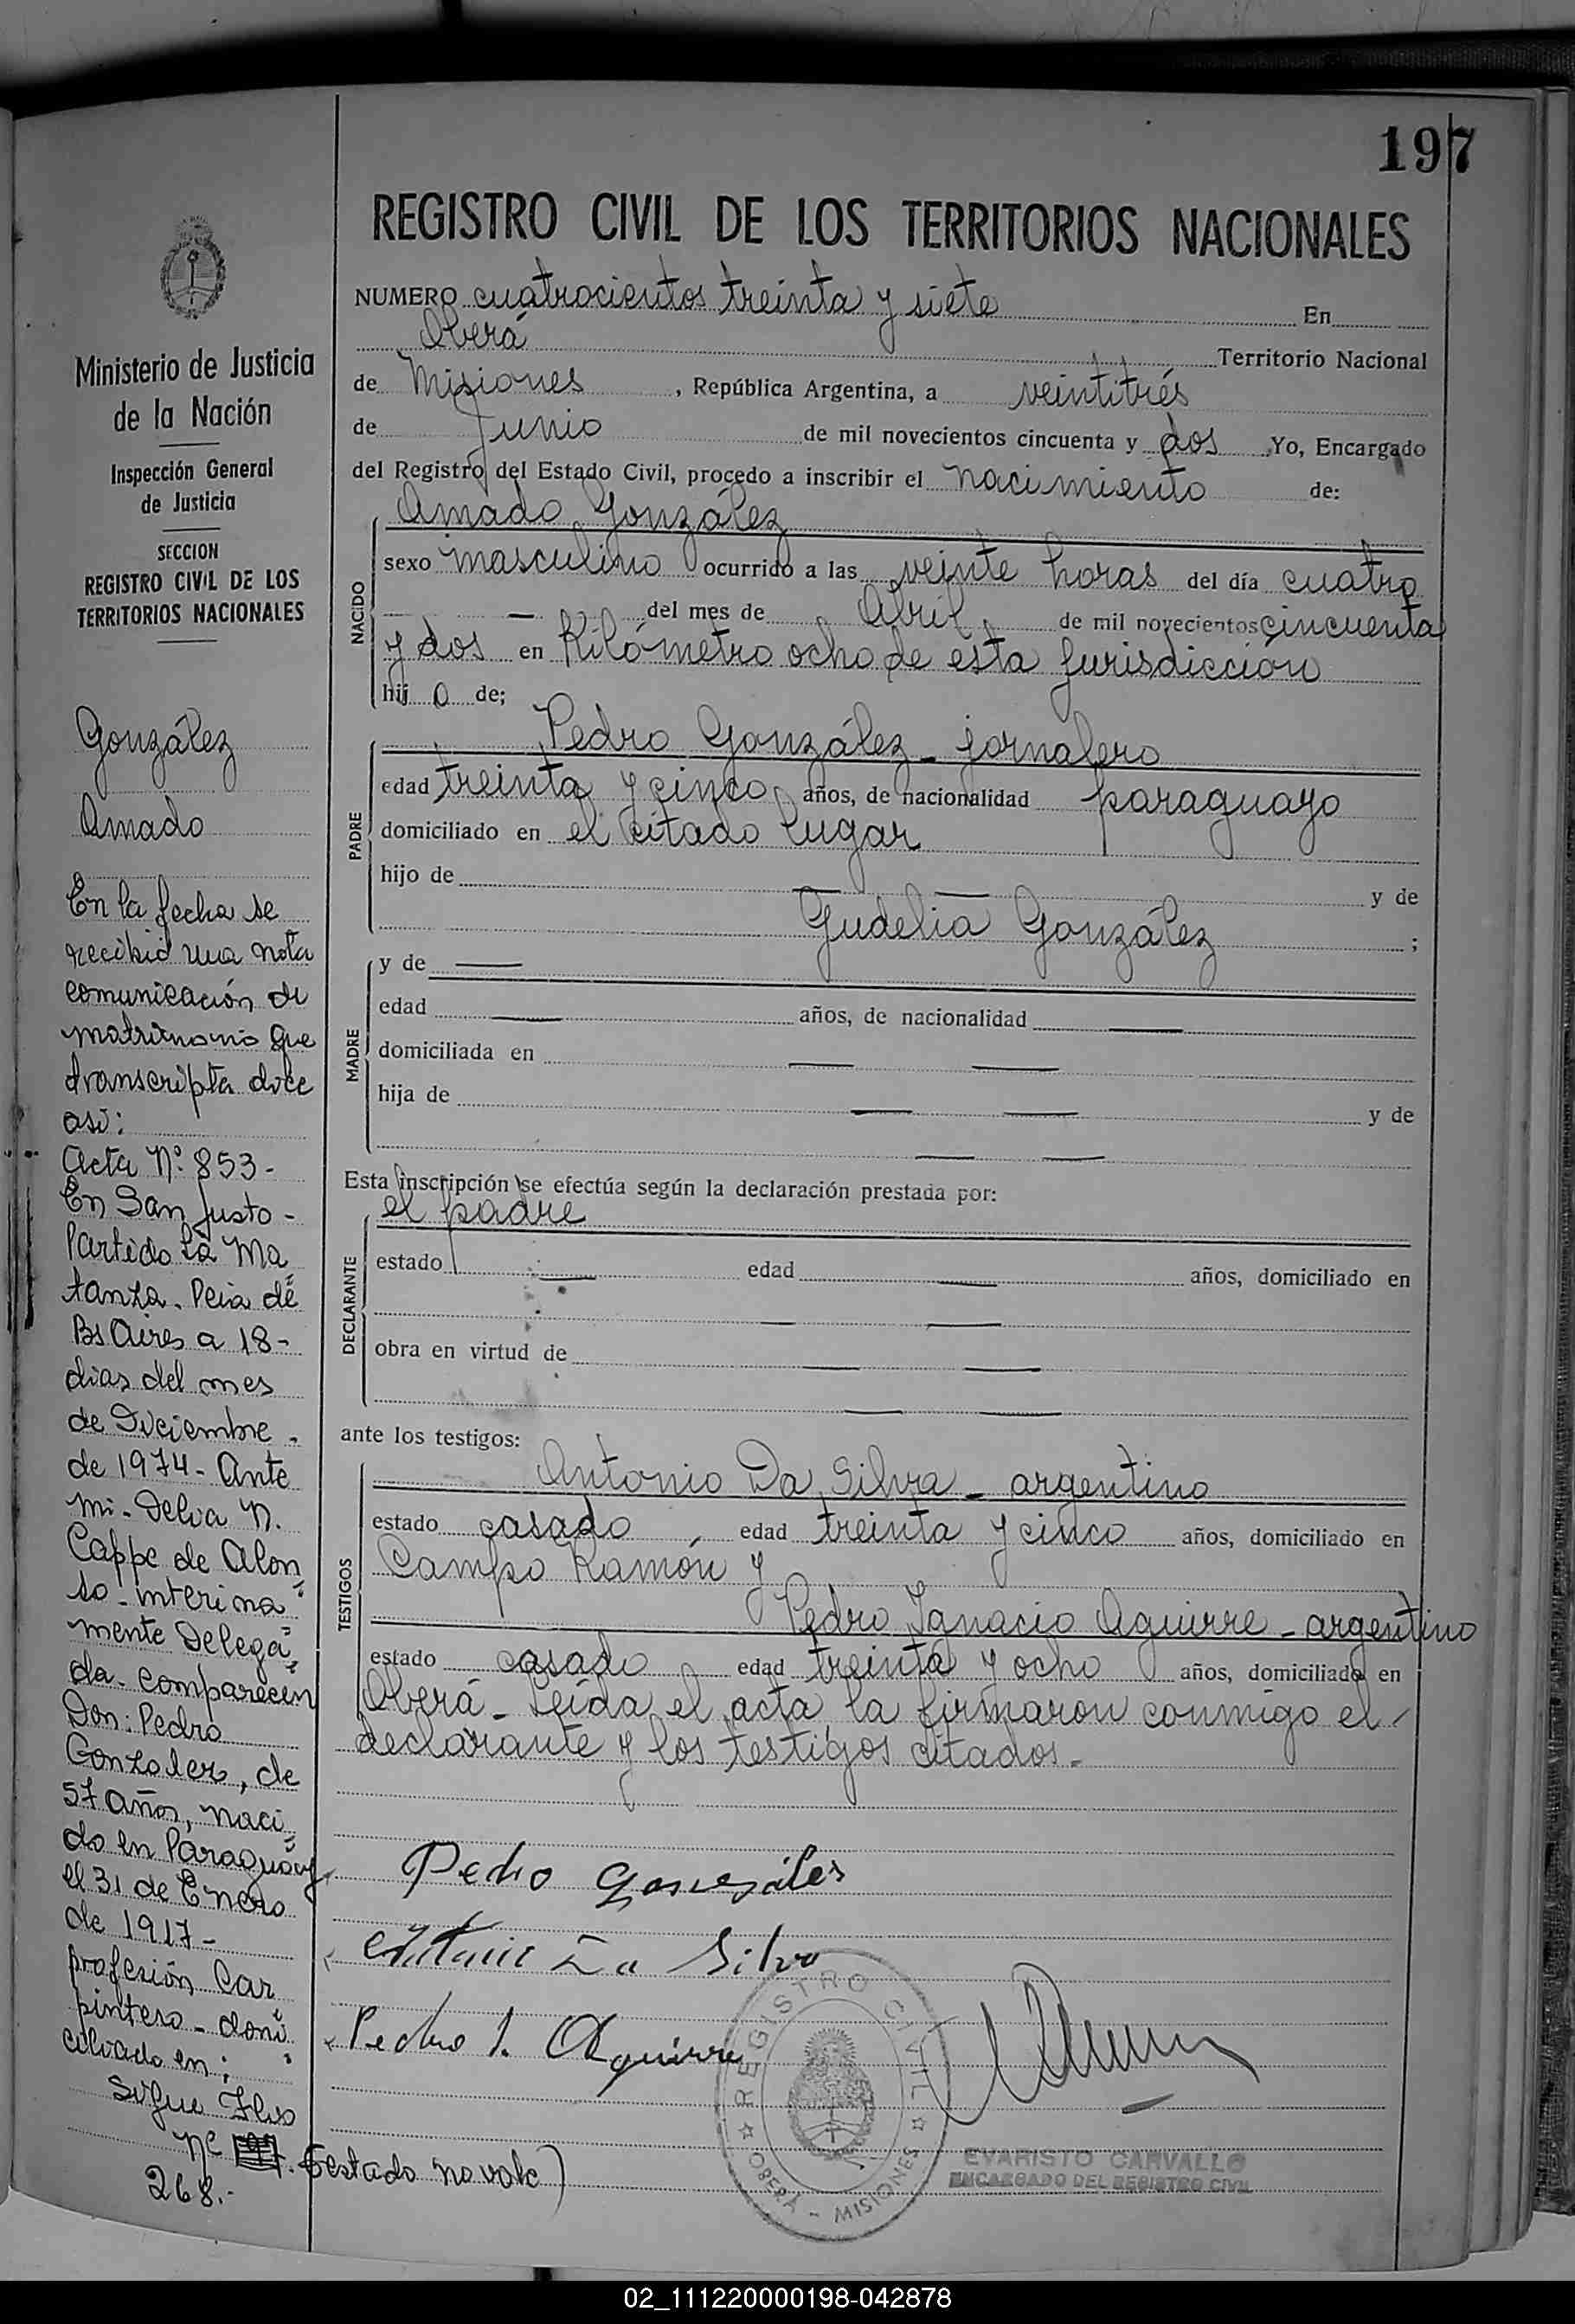 197
REGISTRO CIVIL DE LOS TERRITORIOS NACIONALES
NUMERO cuatrocientos treinta y siete En
Oberá Territorio Nacional
de Misiones , República Argentina, a veintitrés
de Junio de mil novecientos cincuenta y dos Yo, Encargado
del Registro del Estado Civil, procedo a inscribir el nacimiento de:
Amado González
NACIDO
sexo masculino ocurrido a las veinte horas del día cuatro
— del mes de Abril de mil novecientos cincuenta
y dos en Kilómetro ocho de esta jurisdicción
hij o de;
Pedro González - jornalero
PADRE
edad treinta y cinco años, de nacionalidad paraguayo
domiciliado en el citado lugar
hijo de — — y de
Gudelia González ;
y de —
MADRE
edad — años, de nacionalidad —
domiciliada en — —
hija de — — y de
— —
Esta inscripción se efectúa según la declaración prestada por:
el padre
DECLARANTE
estado — edad — años, domiciliado en
— —
obra en virtud de — —
— —
ante los testigos:
Antonio Da Silva - argentino
TESTIGOS
estado casado, edad treinta y cinco años, domiciliado en
Campo Ramón y
Pedro Ignacio Aguirre - argentino
estado casado edad treinta y ocho años, domiciliado en
Oberá - Leída el acta, la firmaron conmigo el
declarante y los testigos citados.-
Pedro Gonsesáles
Antonio Da Silva
Pedro I. Aguirre
REGISTRO CIVIL
OBERÁ - MISIONES
EVARISTO CARVALLO
ENCARGADO DEL REGISTRO CIVIL
Ministerio de Justicia
de la Nación
Inspección General
de Justicia
SECCION
REGISTRO CIVIL DE LOS
TERRITORIOS NACIONALES
González
Amado
En la fecha se
recibió una nota
comunicación de
matrimonio que
transcripta dice
asi:
Acta Nº 853-
En San Justo-
Partido La Ma
tanza. Pcia de
Bs Aires a 18-
dias del mes
de Diciembre -
de 1974- Ante
mi- Delia N.
Cappe de Alon
so- interina
mente Delega
da- comparecen
Don: Pedro
Gonzalez, de
57 años, naci
do en Paraguay
el 31 de Enero
de 1917-
profesión Car
pintero - domi
ciliado en;
Sigue Flio
Nº (testado no vale)
268.-
02_111220000198-042878